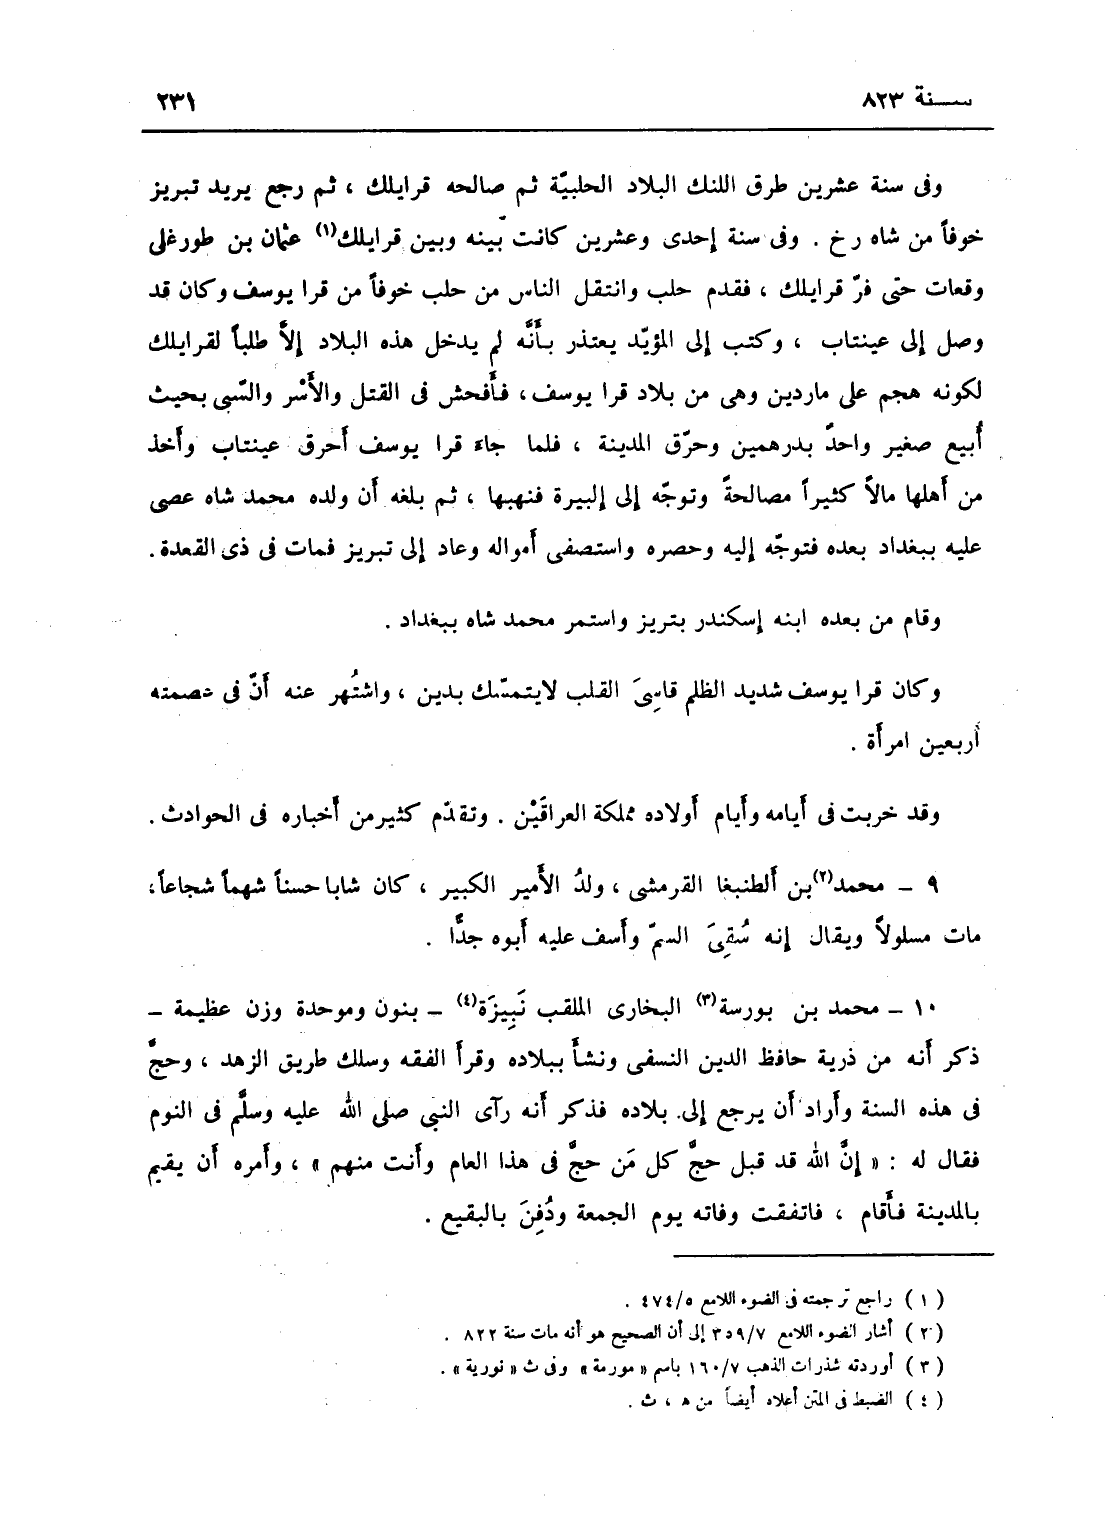 سنة ٨٢٣ ٢٣١
وفى سنة عشرين طرق اللنك البلاد الحلبيّة ثم صالحه قرايلك ، ثم رجع يريد تبريز
خوفاً من شاه رخ . وفى سنة إحدى وعشرين كانت بينه وبين قرايلك(١) عثمان بن طورغلى
وقعات حتى فرّ قرايلك ، فقدم حلب وانتقل الناس من حلب خوفاً من قرا يوسف وكان قد
وصل إلى عينتاب ، وكتب إلى المؤيّد يعتذر بأنَّه لم يدخل هذه البلاد إلاَّ طلباً لقرايلك
لكونه هجم على ماردين وهى من بلاد قرا يوسف ، فأفحش فى القتل والأَسْر والسّبى بحيث
أُبيع صغير واحدٌ بدرهمين وحرّق المدينة ، فلما جاءَ قرا يوسف أَحرق عينتاب وأَخذ
من أَهلها مالاً كثيراً مصالحةً وتوجّه إلى إلبيرة فنهبها ، ثم بلغه أن ولده محمد شاه عصى
عليه ببغداد بعده فتوجّه إليه وحصره واستصفى أمواله وعاد إلى تبريز فمات فى ذى القعدة .
وقام من بعده ابنه إسكندر بتريز واستمر محمد شاه ببغداد .
وكان قرا يوسف شديد الظلم قاسِىَ القلب لايتمسّك بدين ، واشتُهر عنه أَنّ فى عصمته
أربعين امرأَة .
وقد خربت فى أَيامه وأَيام أَولاده مملكة العراقَيْن . وتقدّم كثيرمن أَخباره فى الحوادث .
٩ – محمد(٢)بن أَلطنبغا القرمشى ، ولدُ الأَمير الكبير ، كان شابا حسناً شهماً شجاعاً،
مات مسلولاً ويقال إنه سُقِىَ السمّ وأَسف عليه أَبوه جدًّا .
١٠ – محمد بن بورسة(٣) البخارى الملقب نَبِيزَة(٤) – بنون وموحدة وزن عظيمة –
ذكر أَنه من ذرية حافظ الدين النسفى ونشأَ ببلاده وقرأَ الفقه وسلك طريق الزهد ، وحجَّ
فى هذه السنة وأَراد أَن يرجع إلى بلاده فذكر أَنه رآى النبي صلى الله عليه وسلَّم فى النوم
فقال له : « إنَّ الله قد قبل حجَّ كل مَن حجَّ فى هذا العام وأَنت منهم » ، وأَمره أَن يقيم
بالمدينة فأَقام ، فاتفقت وفاته يوم الجمعة ودُفِنَ بالبقيع .
( ١ ) راجع ترجمته فى الضوء اللامع ٤٧٤/٥ .
( ٢ ) أشار الضوء اللامع ٣٥٩/٧ إلى أن الصحيح هو أنه مات سنة ٨٢٢ .
( ٣ ) أوردته شذرات الذهب ١٦٠/٧ باسم « مورمة » وفى ث « نورية » .
( ٤ ) الضبط فى المتن أعلاه أيضاً من ﻫ ، ث .